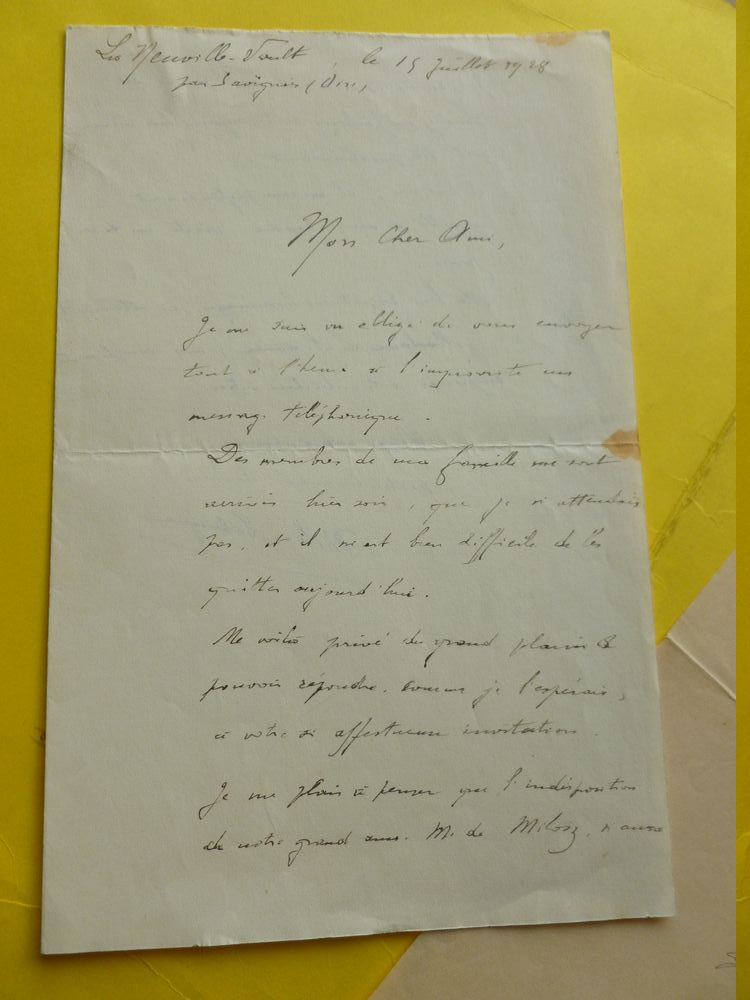 La Neuville-Vault, le 15 Juillet 1928
par Savignies (Oise)
Mon Cher Ami,
Je me suis vu obligé de vous envoyer
tout à l'heure à l'improviste un
message téléphonique.
Des membres de ma famille me sont
arrivés hier soir, que je n'attendais
pas, et il m'est bien difficile de les
quitter aujourd'hui.
Me voilà privé du grand plaisir de
pouvoir répondre, comme je l'espérais,
à votre si affectueuse invitation.
Je me plais à penser que l'indisposition
de notre grand ami, M. de Milosz, n'aura